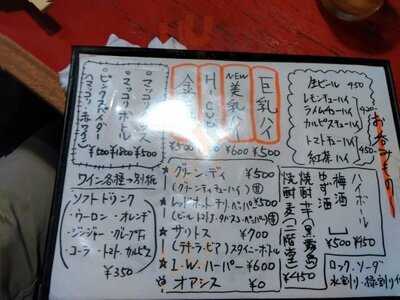 お呑みもの
生ビール 450
レモンチューハイ
ライムチューハイ
カルピスチューハイ
420
トマトチューハイ
紅茶ハイ
450
巨乳ハイ
¥500
NEW美乳ハイ
¥600
H-CUP
¥500
マッコリ
¥500
マッコリボトル
¥1800
ピンクスパイダー
(マッコリ・カシス)
ハイボール
¥450
梅酒
ゆず酒
¥500
焼酎 芋(黒霧島)
焼酎 麦(二階堂)
¥450
ロック、ソーダ
水割り、緑割り
★グリーンディ ¥500
(グリーンティチューハイ)
★レッドホットチリペパー ¥500
(ビール トマトJ・タバスコ・ペッパー)
★サリトス ¥700
(テキーラ・ビア)スタイニーボトル
★I.W.ハーパー ¥600
オアシス ¥0
ワイン各種→別紙
ソフトドリンク
・ウーロン・オレンヂ
・ジンジャー・グレープフル
・コーラ・トマト・カルピス
¥350